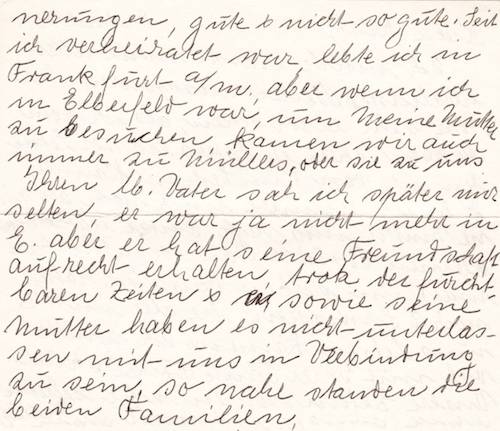 nerungen, gute & nicht so gute. Seit
ich verheiratet war lebte ich in
Frankfurt a/m, aber wenn ich
in Elberfeld war, um meine Mutter
zu besuchen, kamen wir auch
immer zu Müllers, oder sie zu uns
Ihren lb. Vater sah ich später nur
selten, er war ja nicht mehr in
E. aber er hat seine Freundschaft
aufrecht erhalten, trotz der furcht
baren Zeiten & er, sowie seine
Mutter haben es nicht unterlas-
sen mit uns in Verbindung
zu sein, so nahe standen die
beiden Familien,